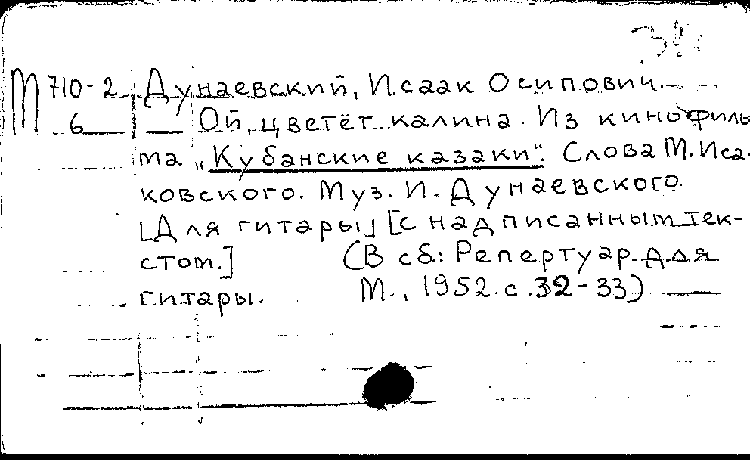 М 710-2 Дунаевский, Исаак Осипович.
6 Ой, цветёт калина. Из кинофиль-
ма „Кубанские казаки". Слова М. Иса-
ковского. Муз. И. Дунаевского.
[Для гитары] [с надписанным тек-
стом.] (В сб: Репертуар для
гитары. М., 1952. с. 32-33)